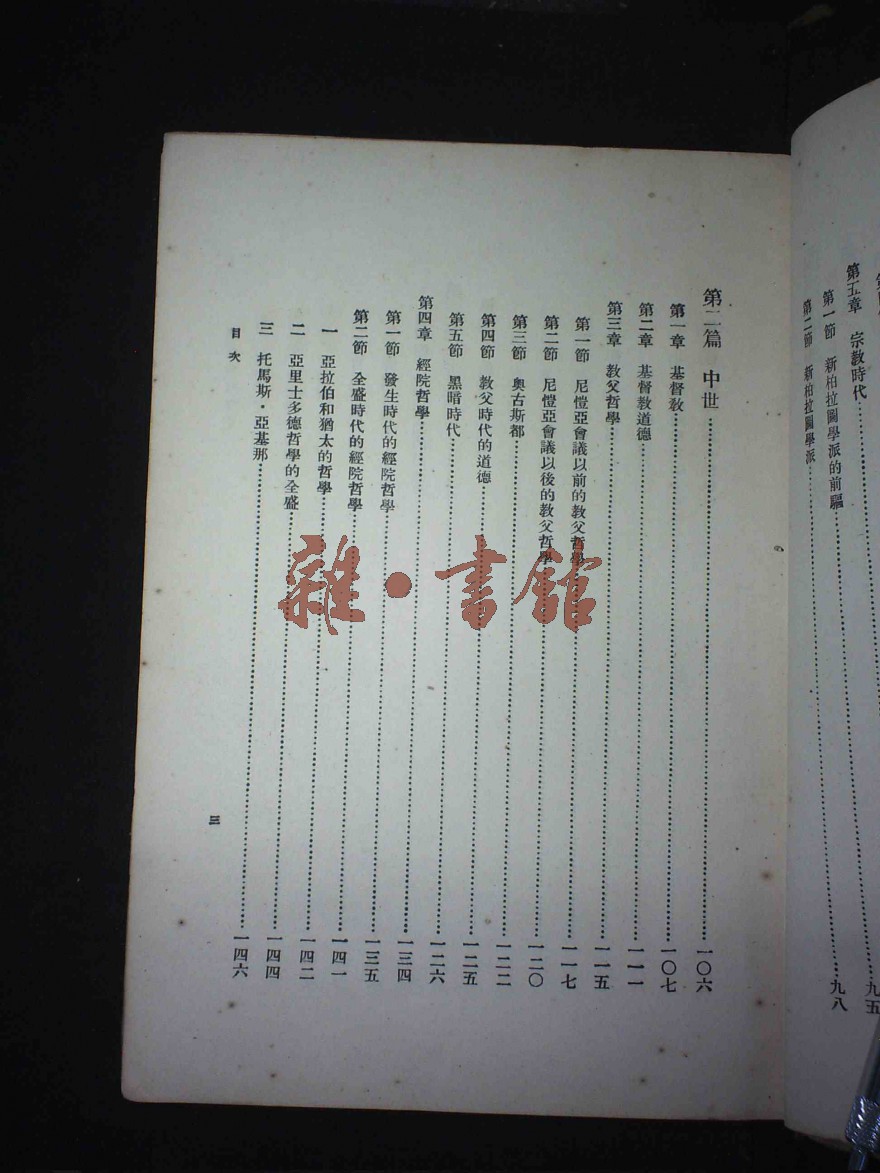 第五章 宗教時代……九五
第一節 新柏拉圖學派的前驅……九八
第二節 新柏拉圖學派……
第二篇 中世……一〇六
第一章 基督教……一〇七
第二章 基督教道德……一一一
第三章 教父哲學……一一五
第一節 尼愷亞會議以前的教父哲學……一一七
第二節 尼愷亞會議以後的教父哲學……一二〇
第三節 奧古斯都……一二二
第四節 教父時代的道德……一二五
第五節 黑暗時代……一二六
第四章 經院哲學……一三四
第一節 發生時代的經院哲學……一三五
第二節 全盛時代的經院哲學……一四一
一 亞拉伯和猶太的哲學……一四二
二 亞里士多德哲學的全盛……一四四
三 托馬斯·亞基那……一四六
目次
三
雜·書館